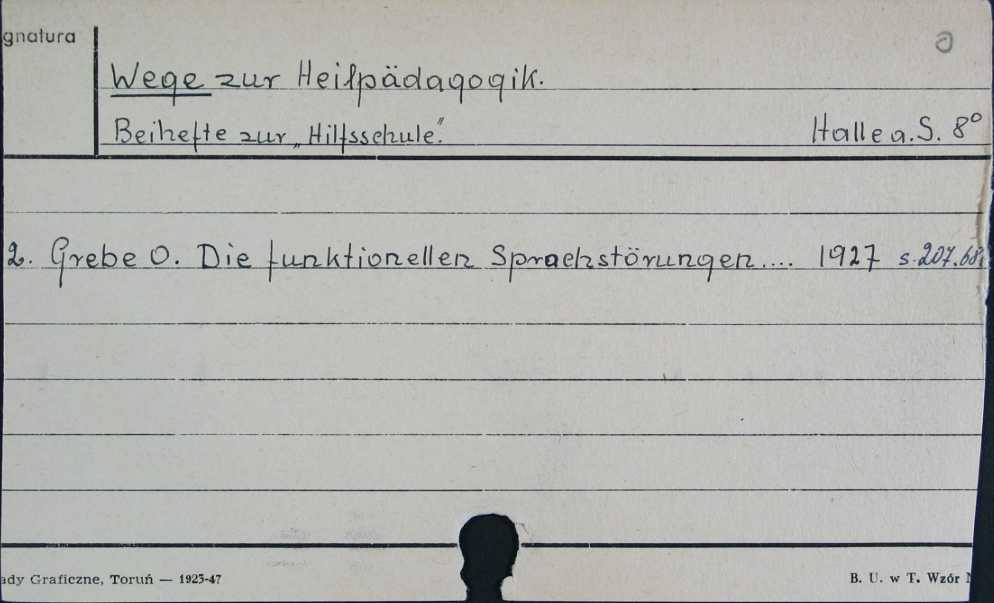 gnatura
Wege zur Heilpädagogik.
Beihefte zur „Hilfsschule".
Halle a. S. 8°
2. Grebe O. Die funktionellen Sprachstörungen.... 1927 s. 207.68
ady Graficzne, Toruń — 1923-47
B. U. w T. Wzór